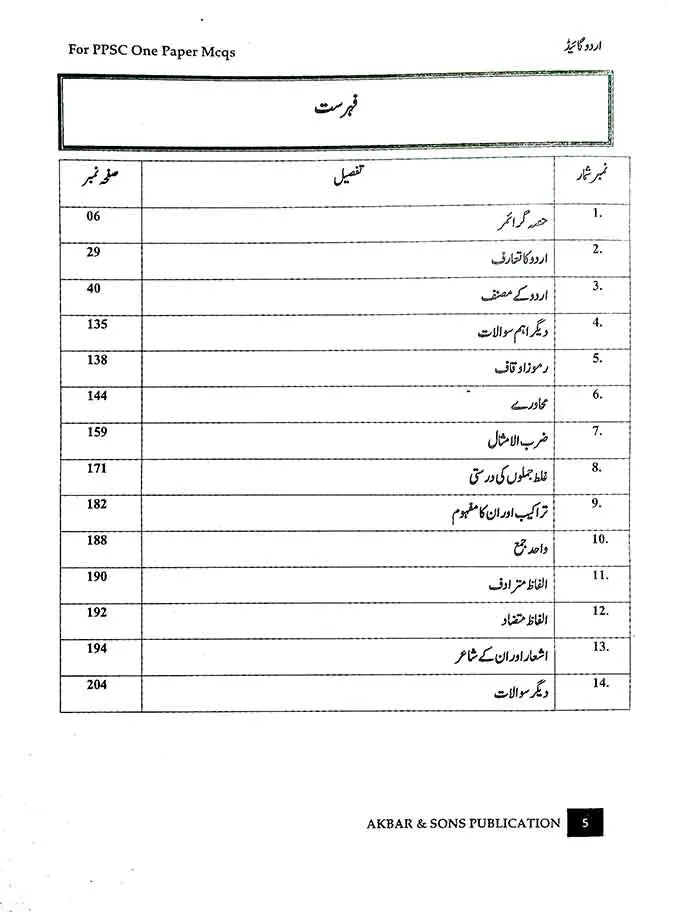 For PPSC One Paper Mcqs اردو گائیڈ
فہرست
نمبر شمار تفصیل صفحہ نمبر
1. حصہ گرائمر 06
2. اردو کا تعارف 29
3. اردو کے مصنف 40
4. دیگر اہم سوالات 135
5. رموز اوقاف 138
6. محاورے 144
7. ضرب الامثال 159
8. غلط جملوں کی درستی 171
9. تراکیب اور ان کا مفہوم 182
10. واحد جمع 188
11. الفاظ مترادف 190
12. الفاظ متضاد 192
13. اشعار اور ان کے شاعر 194
14. دیگر سوالات 204
AKBAR & SONS PUBLICATION 5